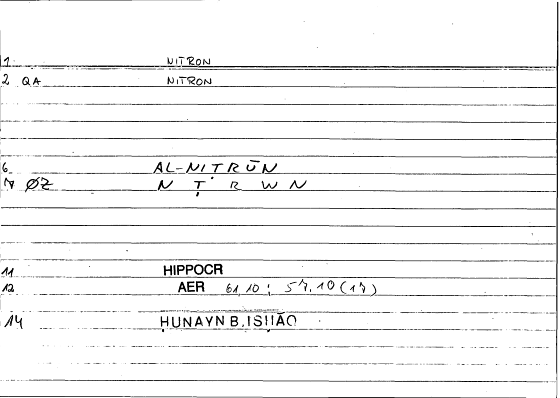 1 NITRON
2 QA NITRON
6 AL-NIṬRŪN
7 ØZ N Ṭ R W N
11 HIPPOCR
12 AER 61,10; 57,10(17)
14 ḤUNAYN B. ISḤĀQ